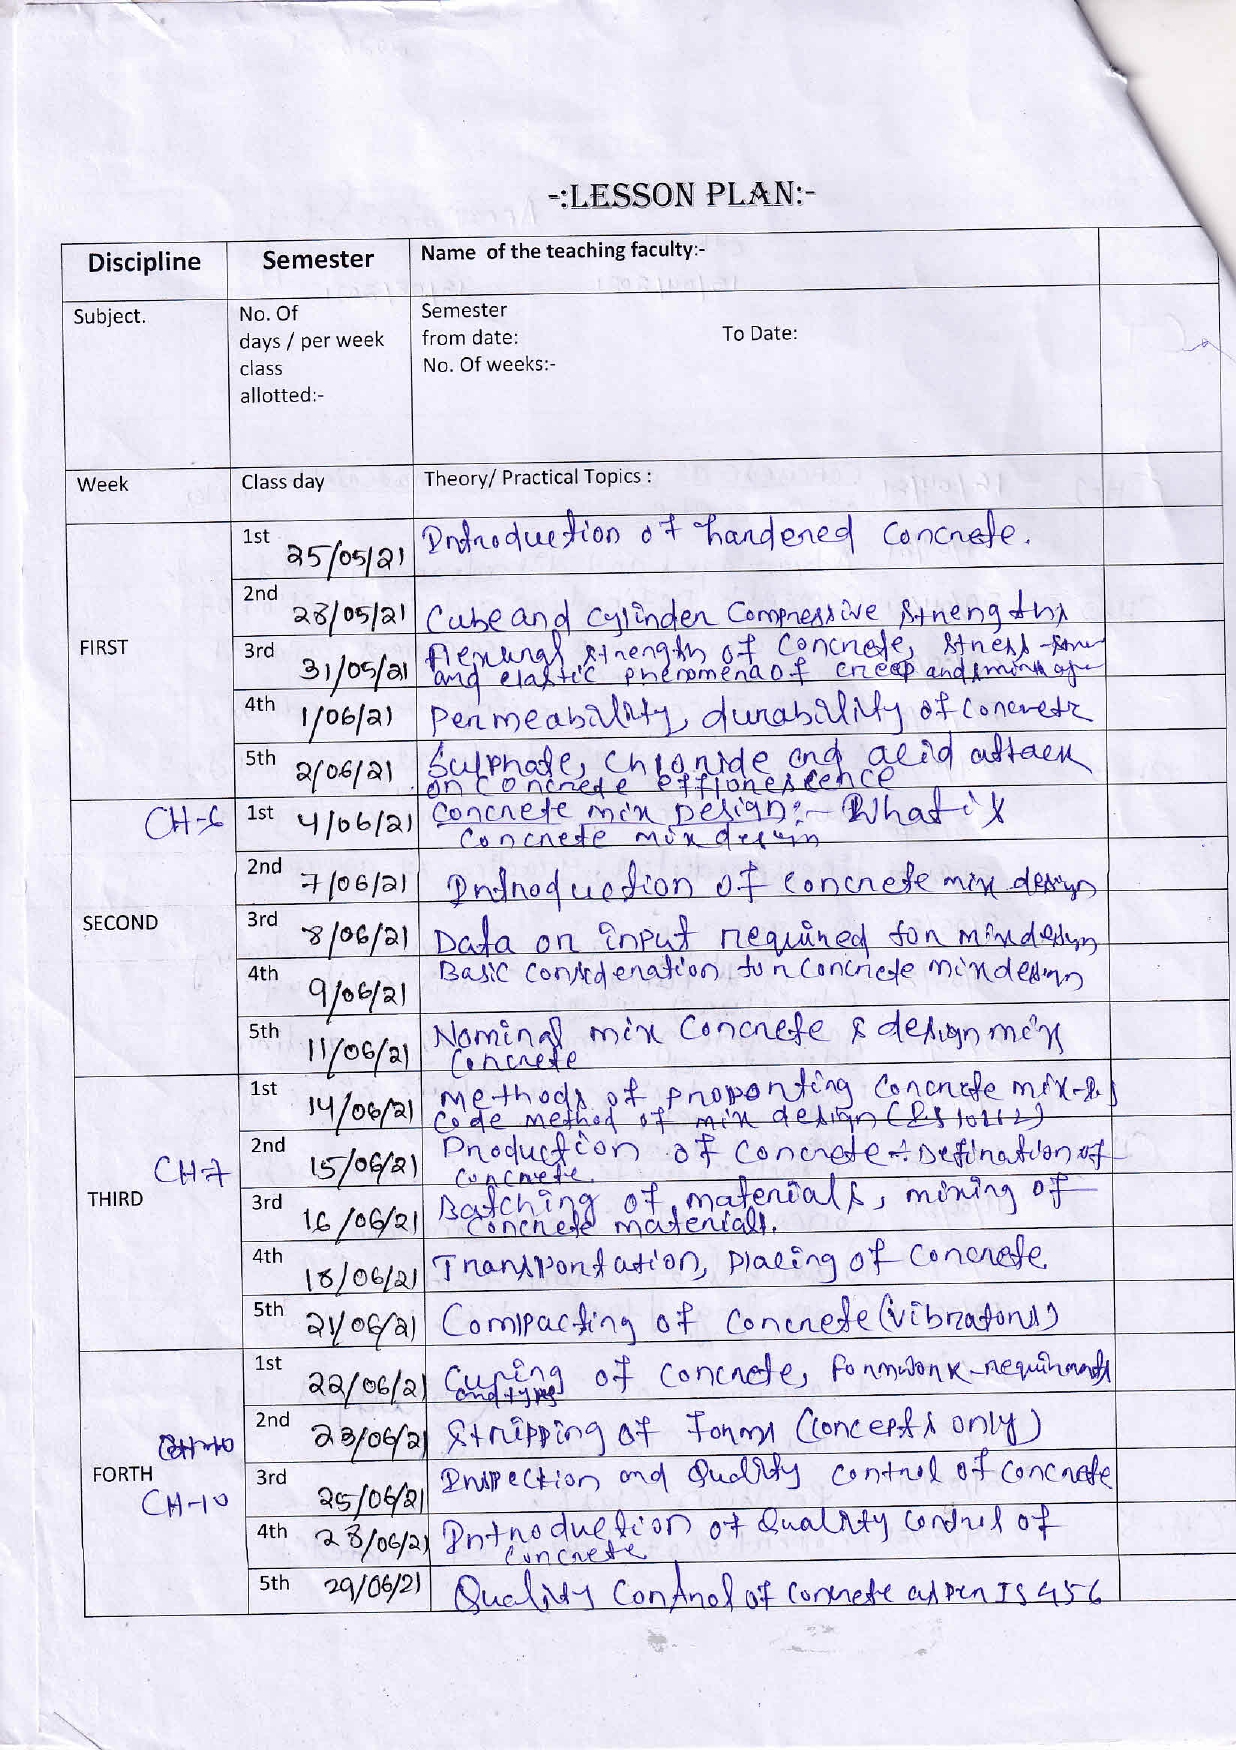 -:LESSON PLAN:-
Discipline Semester Name of the teaching faculty:-
Subject. No. Of Semester
days / per week from date: To Date:
class No. Of weeks:-
allotted:-
Week Class day Theory/ Practical Topics :
FIRST
1st 25/05/21 Introduction of hardened concrete.
2nd 28/05/21 Cube and cylinder Compressive strengths
3rd 31/05/21 flexural strength of concrete, stress-
and elastic phenomena of creep and
4th 1/06/21 Permeability, durability of concrete
5th 2/06/21 Sulphate, chloride and acid attack
on concrete efflorescence
SECOND
CH-6 1st 4/06/21 Concrete mix Design:- What is
concrete mix design
2nd 7/06/21 Introduction of concrete mix design
3rd 8/06/21 Data on input required for mix design
4th 9/06/21 Basic consideration for concrete mix design
5th 11/06/21 Nominal mix concrete & design mix
concrete
THIRD
1st 14/06/21 methods of proporting concrete mix-
code method of mix design
CH-7 2nd 15/06/21 Production of concrete :- Defination of
concrete.
3rd 16/06/21 Batching of materials, mixing of
concrete materials.
4th 18/06/21 Transportation, placing of concrete.
5th 21/06/21 Compacting of concrete (vibrators)
FORTH
1st 22/06/21 Curing of concrete, formwork-requirments
and types
2nd 23/06/21 Stripping of forms (concepts only)
CH-10 3rd 25/06/21 Inspection and Quality control of concrete
4th 28/06/21 Introduction of Quality control of
concrete
5th 29/06/21 Quality Control of concrete as per IS 456